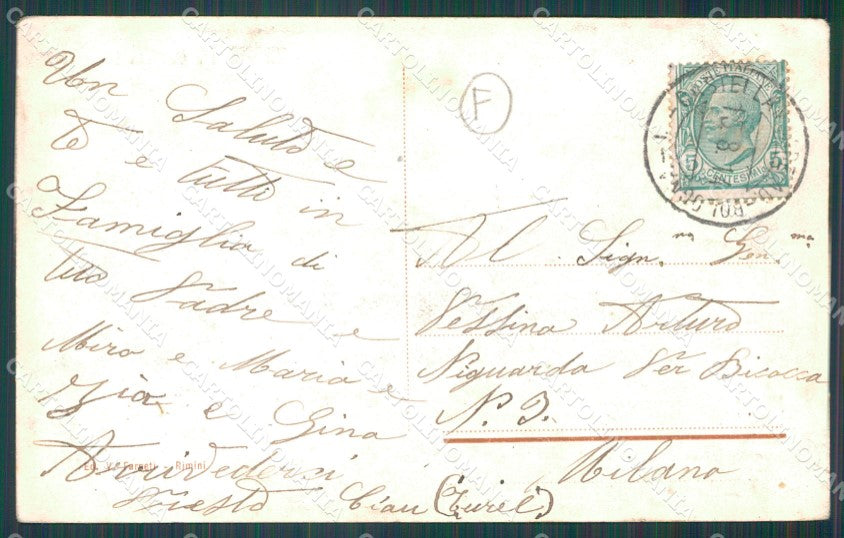 Un Saluto a
Te e tutti in
Famiglia di
tuo Padre e
Miro e Maria e
Zia e Gina
Arrivederci
Presto Ciau (Turel)
Ed. V. Fargeti - Rimini
F
CENTESIMI
5
5
Al Sign. Gen.
Tessina Arturo
Niguarda Per Bicocca
N. 3.
Milano
CARTOLINOMANIA